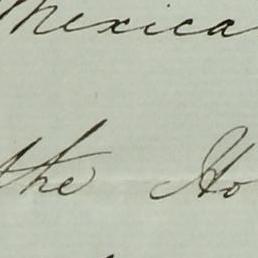 Mexica
the Ho